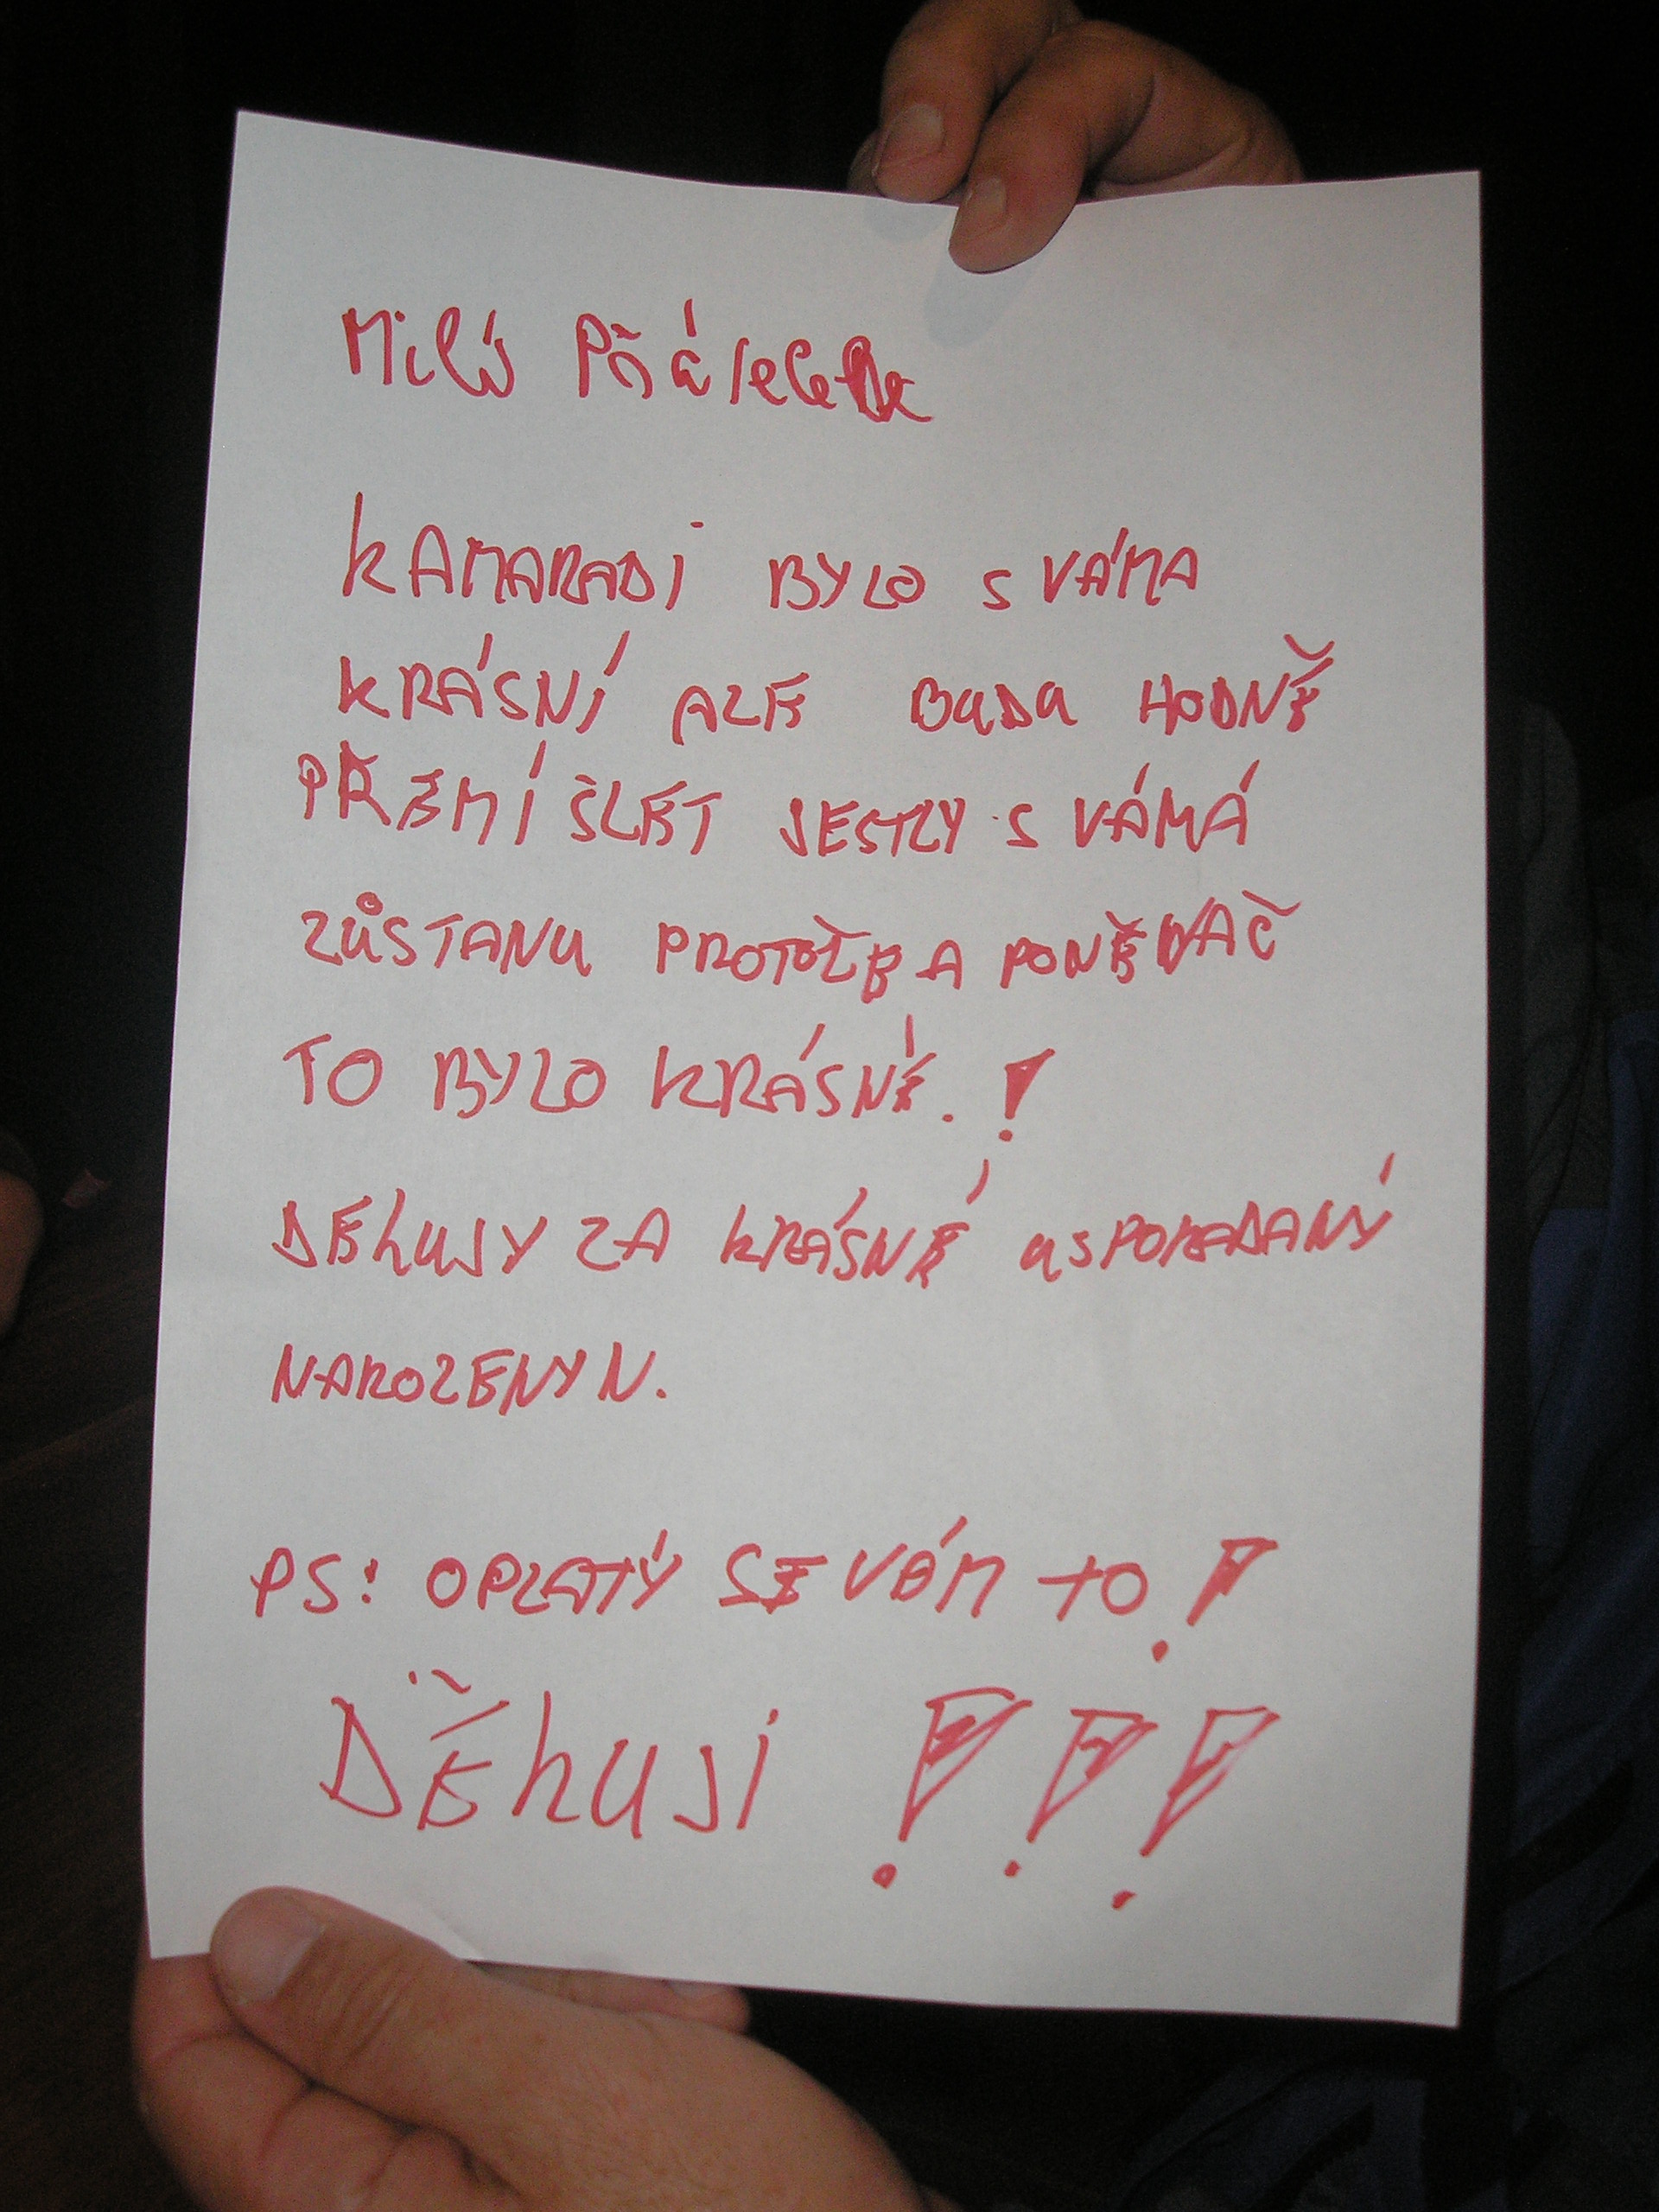 Milý
KAMARADI BYLO S VÁMA
KRÁSNÍ ALE BUDU HODNĚ
PŘEMÍŠLET JESTLY S VÁMÁ
ZŮSTANU PROTOŽE A PONĚVAČ
TO BYLO KRÁSNÉ. !
DĚKUJY ZA KRÁSNÉ USPOŘADANÝ
NAROZENYN.
PS: OPLATÝ SE VÁM TO!
DĚKUJI !!!